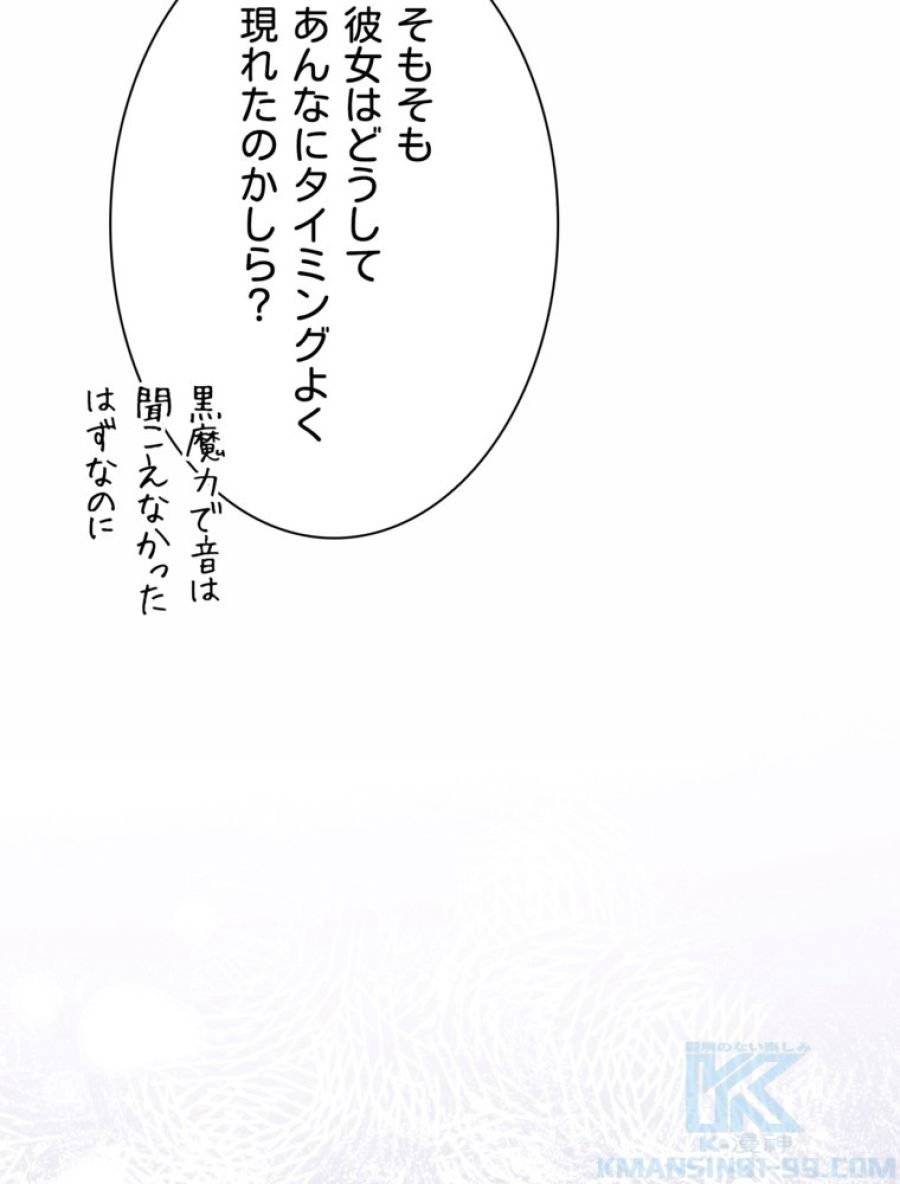 そもそも
彼女はどうして
あんなにタイミングよく
現れたのかしら？
黒魔力で音は
聞こえなかった
はずなのに
K-漫神
KMANSIN01-99.COM